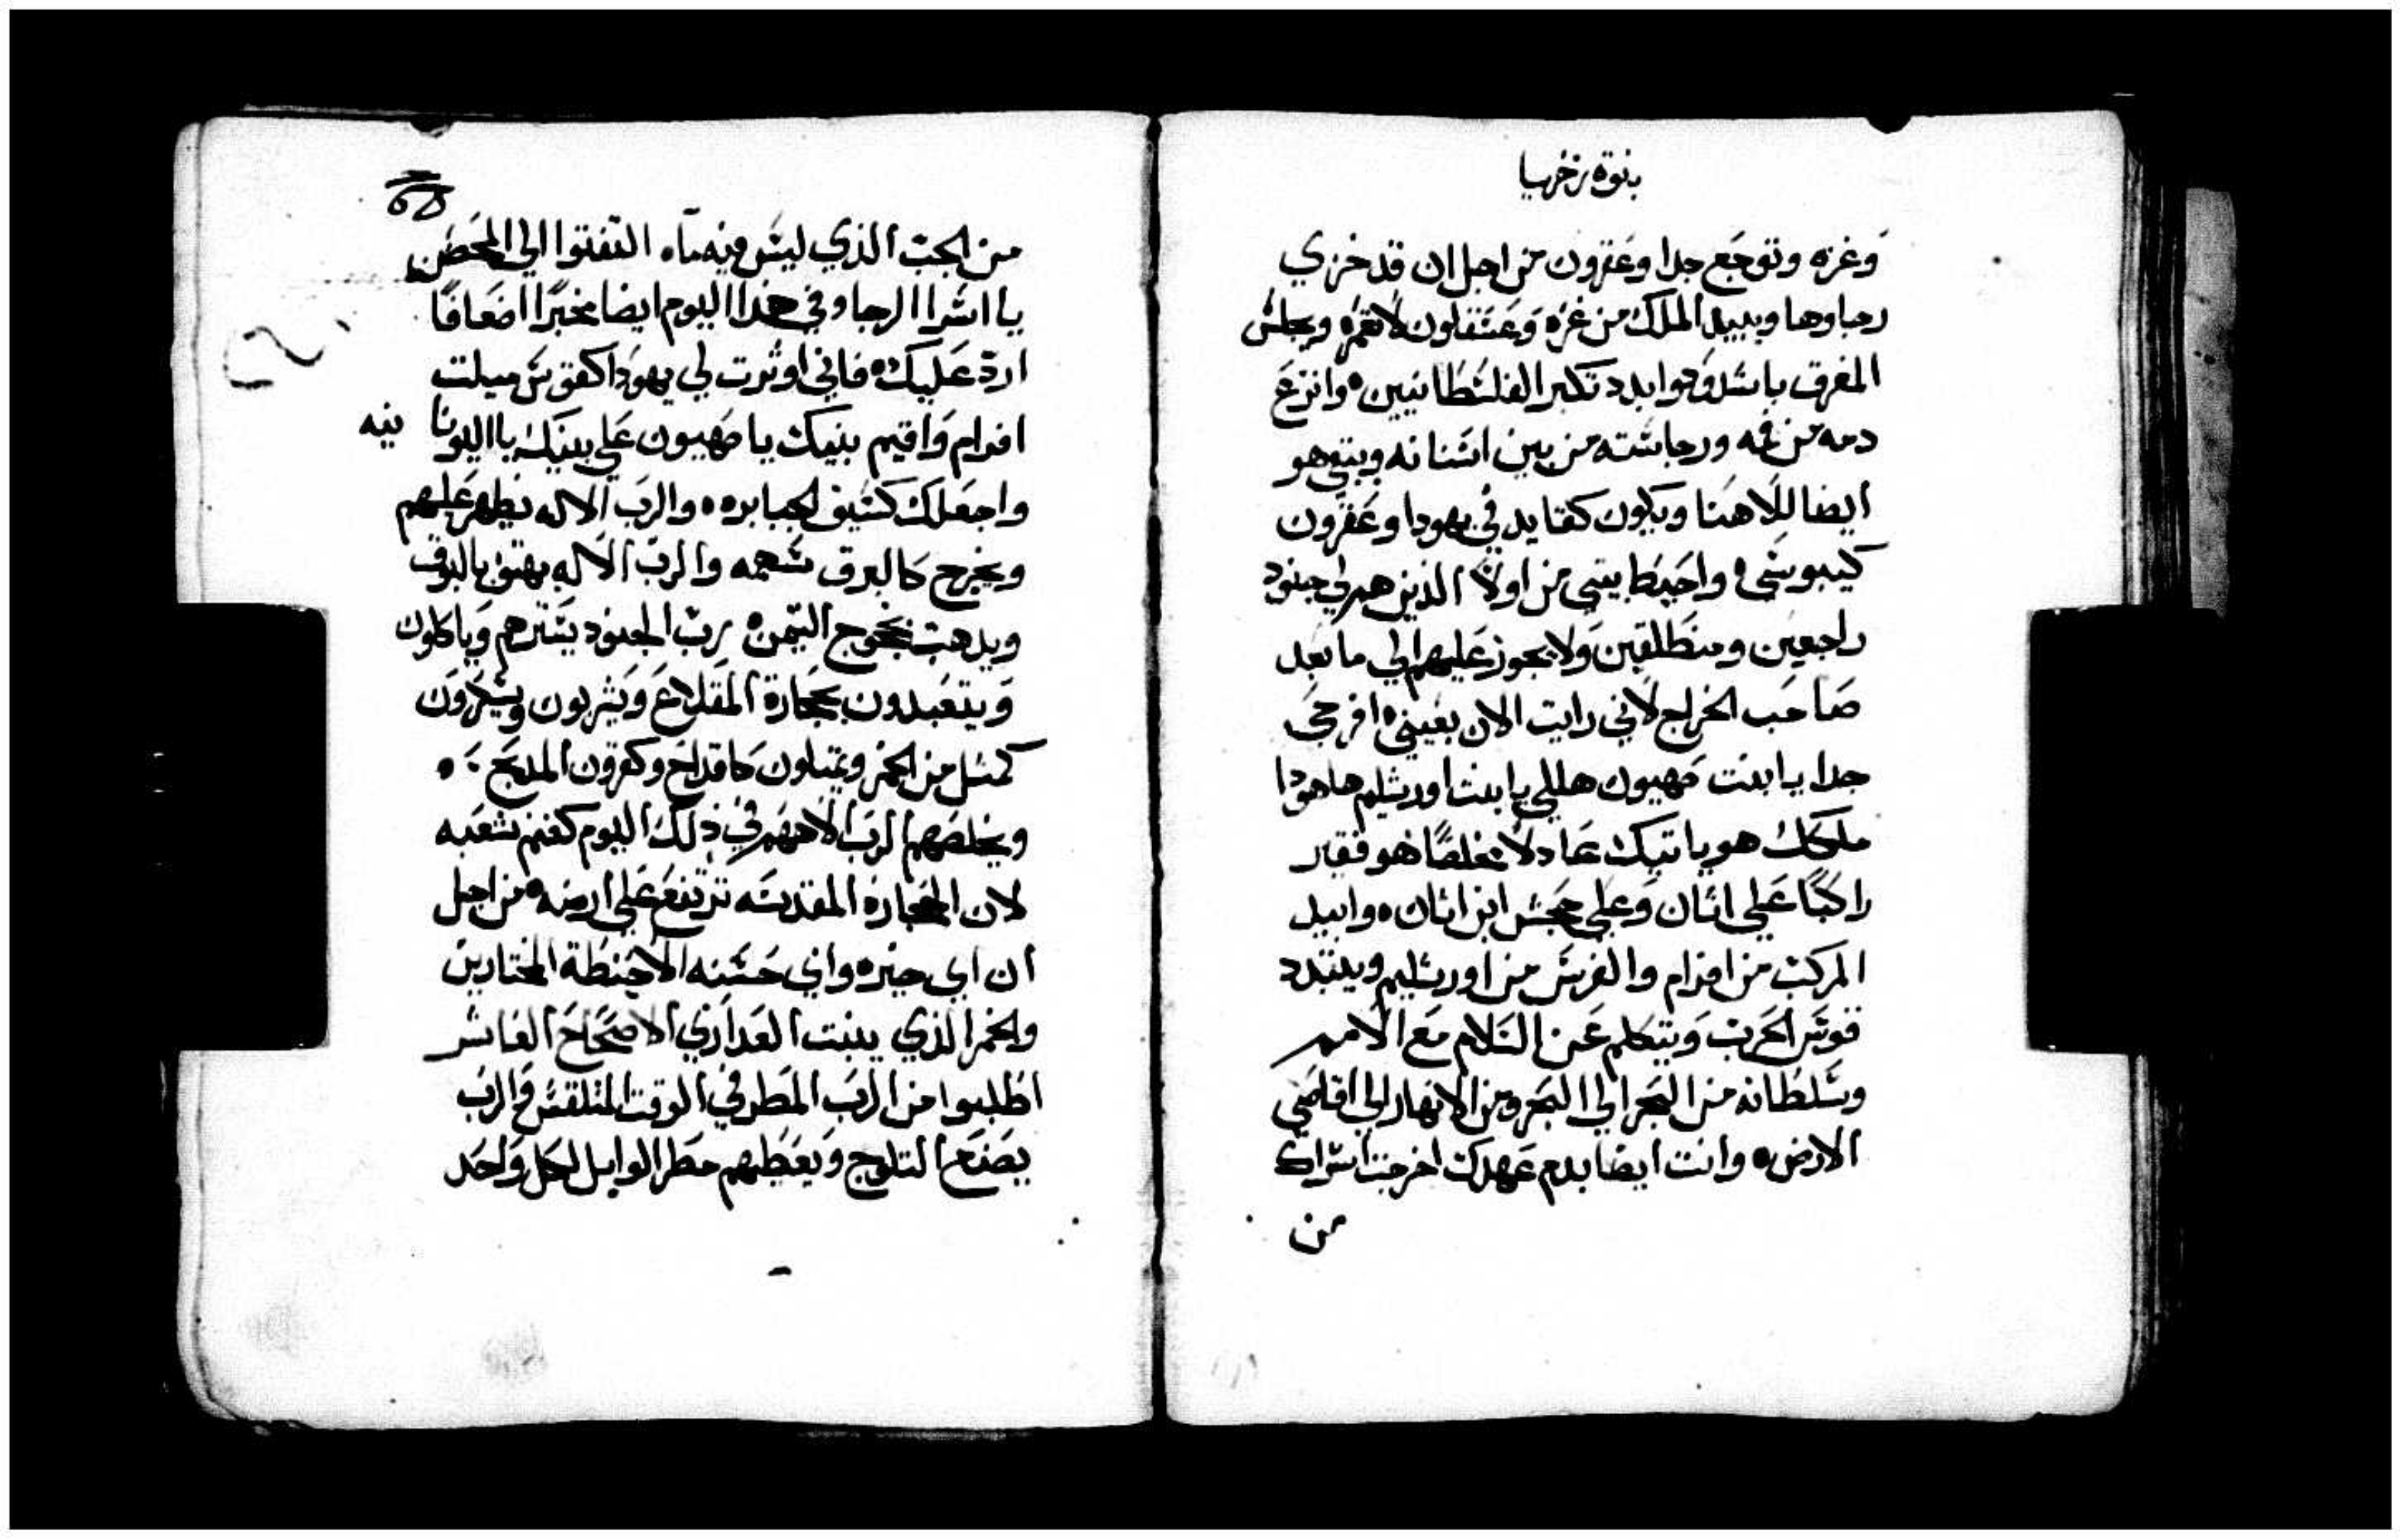 نبوة زخريا
وغزه وتوجع جدا وعقرون من اجل ان قد خزي
رجاوها ويبيد الملك من غزه وعسقلون لا تعمر ويجلس
المفرق باسدود وابدد تكبر الفلسطانيين وانزع
دمه من فمه ورجاسته من بين اسنانه ويبقي هو
ايضا لالاهنا ويكون كقايد في يهودا وعقرون
كيبوسي واحيط بيتي من اولا الذين هم لي جنود
راجعين ومنطلقين ولا يجوز عليهم الي ما بعد
صاحب الخراج لاني رايت الان بعيني افرحي
جدا يا ابنت صهيون هللي يا بنت اورشليم ها هوذا
ملكك هو ياتيك عادلا مخلصا هو فقير
راكبا علي اتان وعلي جحش ابن اتان وابيد
المركب من افرام والفرس من اورشليم ويتبدد
قوس الحرب ويتكلم عن السلام مع الامم
وسلطانه من البحر الي البحر ومن الانهار الي اقاصي
الارض وانت ايضا بدم عهدك اخرجت اسراك
من
من الجب الذي ليس فيه ماء التفتوا الي الحصن
يا اسرا الرجا وفي هذا اليوم ايضا مخبرا اضعافا
ارد عليك فاني اوترت لي يهودا كقوس ميلت
افرام واقيم بنيك يا صهيون علي بنيك يا اليونا نيه
واجعلك كسيف الجبابره والرب الاله يظهر عليهم
ويخرج كالبرق سهمه والرب الاله يهتف بالبوق
ويذهب بخروج التيمن رب الجنود يسترهم وياكلون
ويتعبدون بحجارة المقلاع ويشربون ويسكرون
كمثل من الخمر ويمتلون كاقداح وكقرون المدبح
ويخلصهم الرب الاههم في ذلك اليوم كغنم شعبه
لان الحجاره المقدسه ترتفع علي ارضه من اجل
ان اي خيره واي حسنه الا حنطة المختارين
والخمر الذي ينبت العذاري الاصحاح العاشر
اطلبوا من الرب المطر في الوقت المتلقس والرب
يصنع الثلوج ويعطيهم مطر الوابل لكل واحد